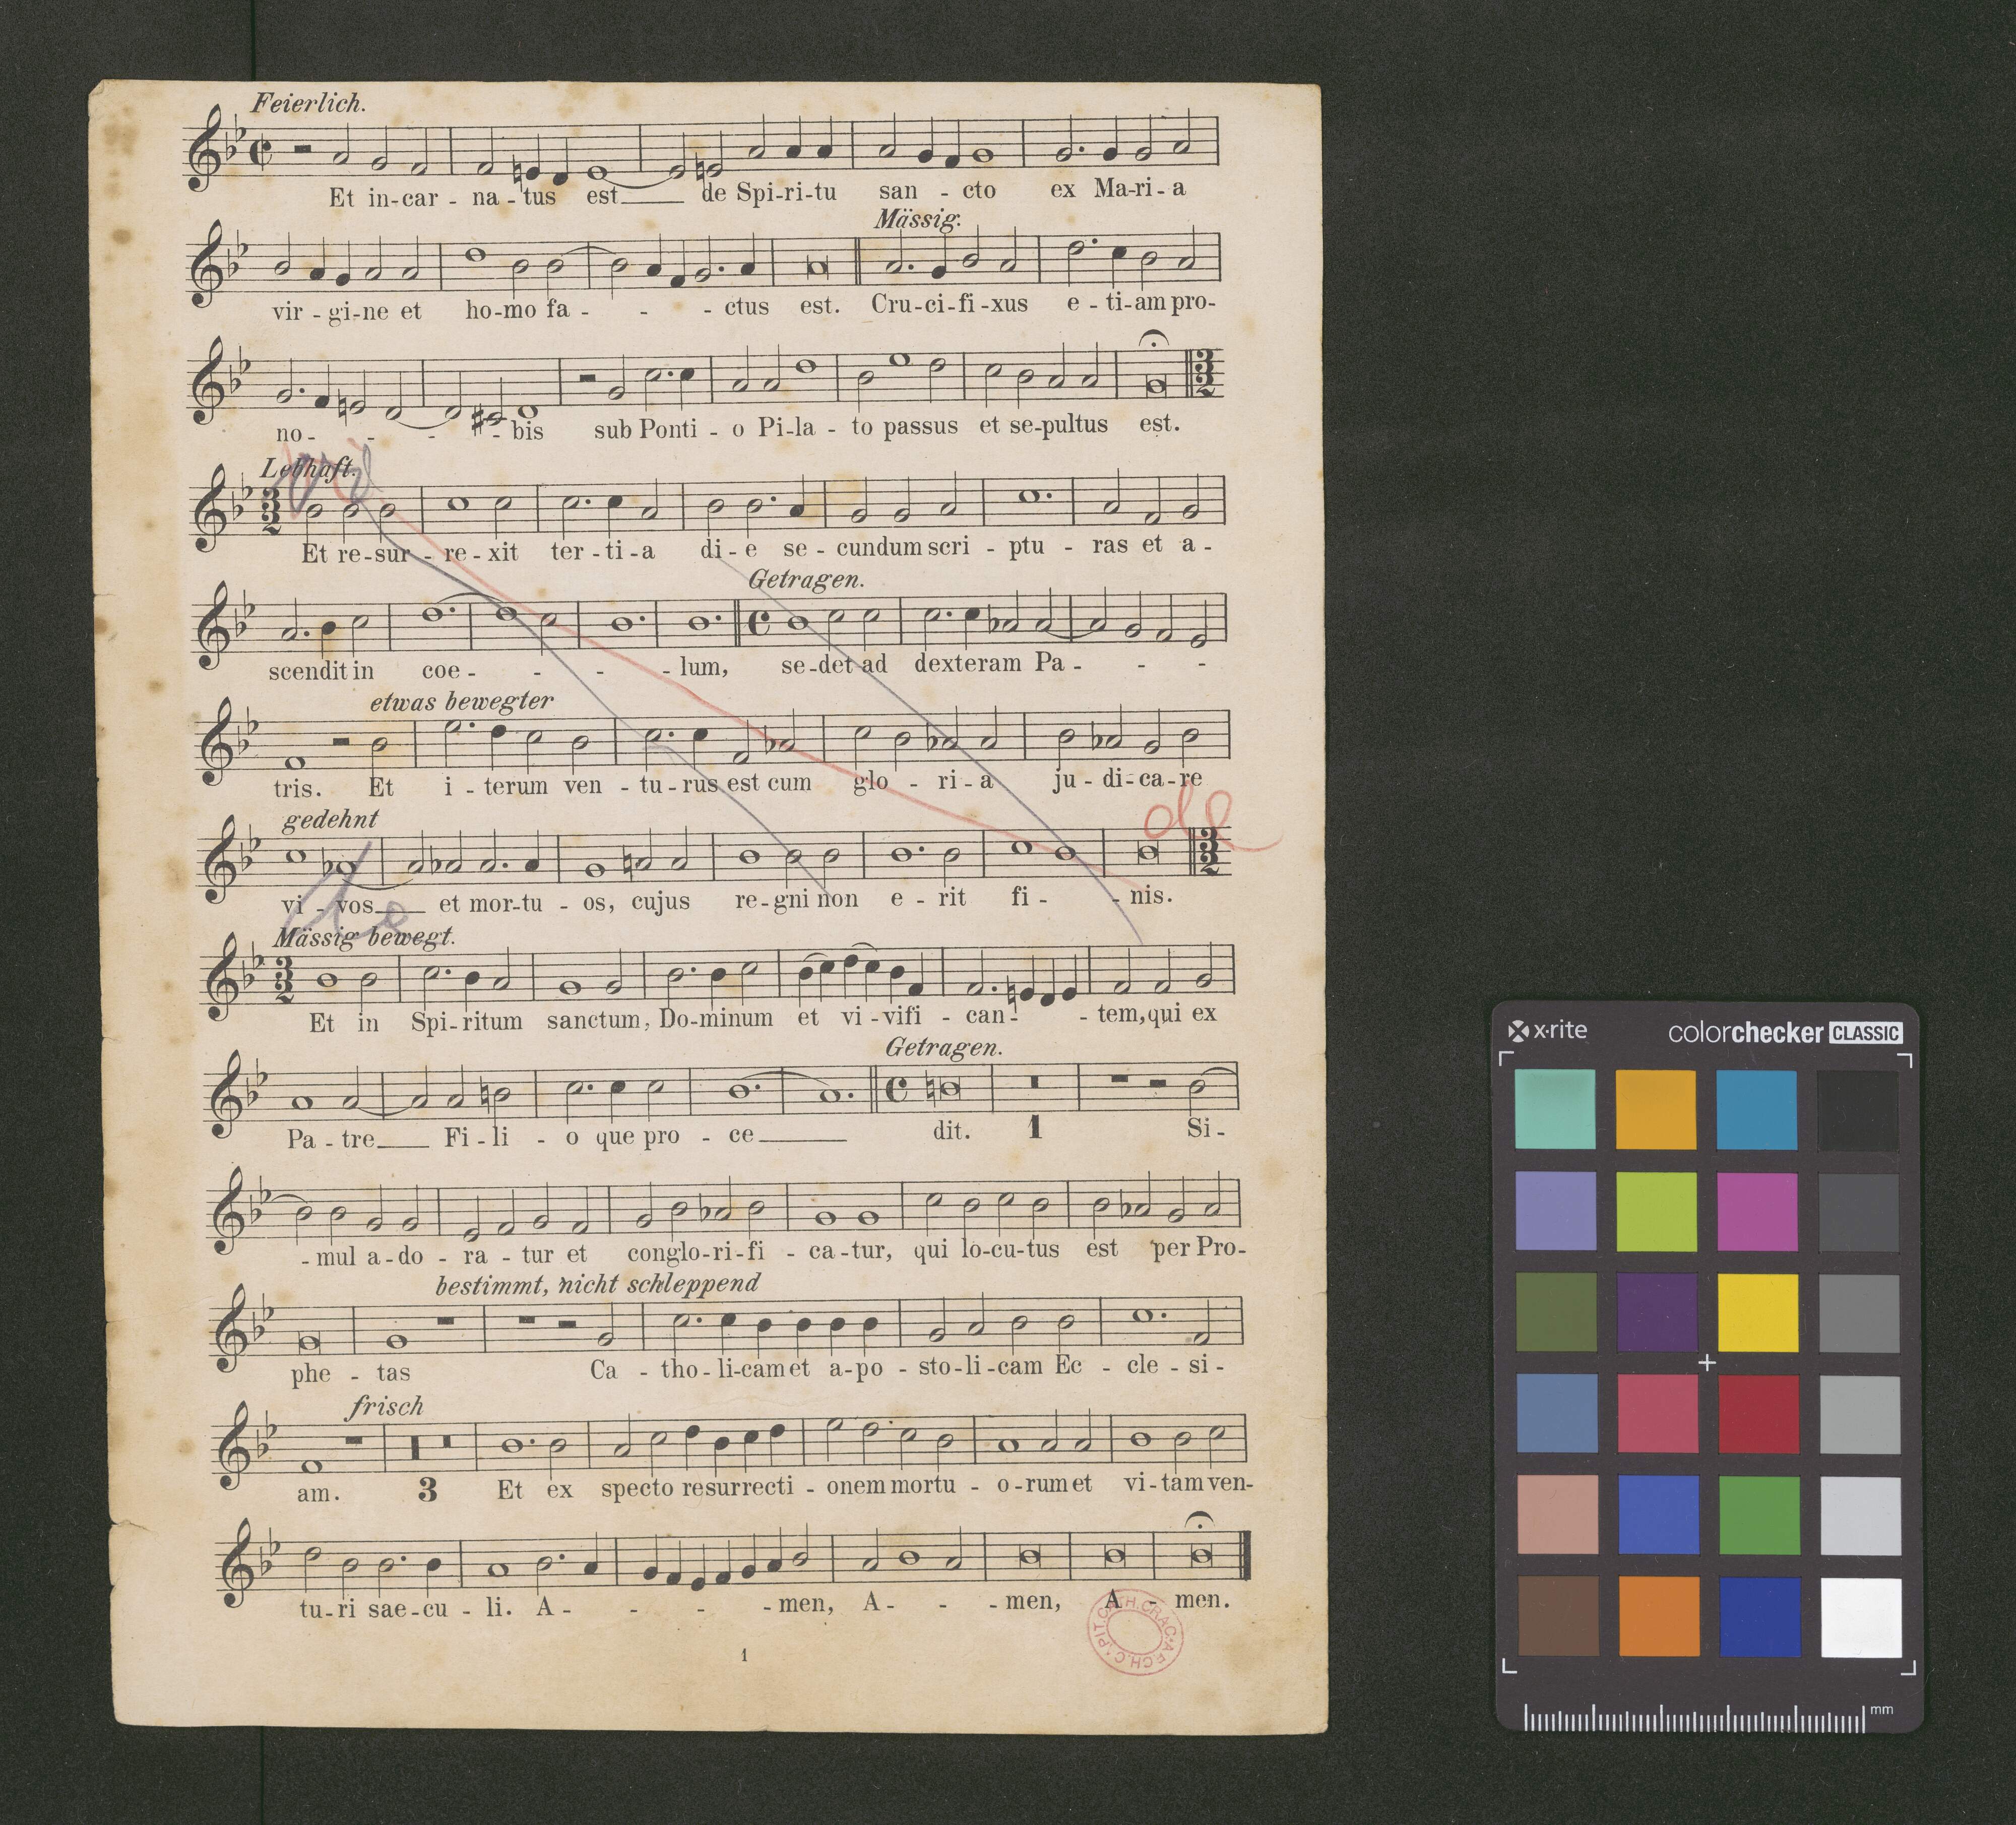 Feierlich.
Et in-car - na - tus est de Spi-ri-tu san - cto ex Ma-ri-a
Mässig.
vir - gi-ne et ho-mo fa - - - ctus est. Cru-ci-fi-xus e - ti-am pro-
no- - - - bis sub Ponti - o Pi-la - to passus et se-pultus est.
3 3 2
Lebhaft.
3 3 2
Et re-sur - re-xit ter-ti-a di-e se - cundum scri - ptu - ras et a-
Getragen.
scendit in coe- - - - lum, se-det ad dexteram Pa- - -
etwas bewegter
tris. Et i - terum ven - tu-rus est cum glo - ri-a ju-di-ca-re
gedehnt
de
vi - vos et mor-tu - os, cujus re-gni non e - rit fi- - nis.
3 3 2
Mässig bewegt.
3 3 2
Et in Spi-ritum sanctum, Do-minum et vi-vifi - can- - tem, qui ex
Getragen.
Pa - tre Fi - li - o que pro - ce dit. 1 Si-
- mul a-do - ra - tur et conglo-ri-fi - ca-tur, qui lo-cu-tus est per Pro-
bestimmt, nicht schleppend
phe - tas Ca - tho-li-cam et a-po - sto-li-cam Ec - cle - si-
frisch
am. 3 Et ex specto resurrecti - onem mortu - o-rum et vi-tam ven-
tu-ri sae-cu - li. A- - - - men, A- - - men, A - men.
CAPIT. CATH. CRAC. A. ECH.
1
x·rite colorchecker CLASSIC
mm